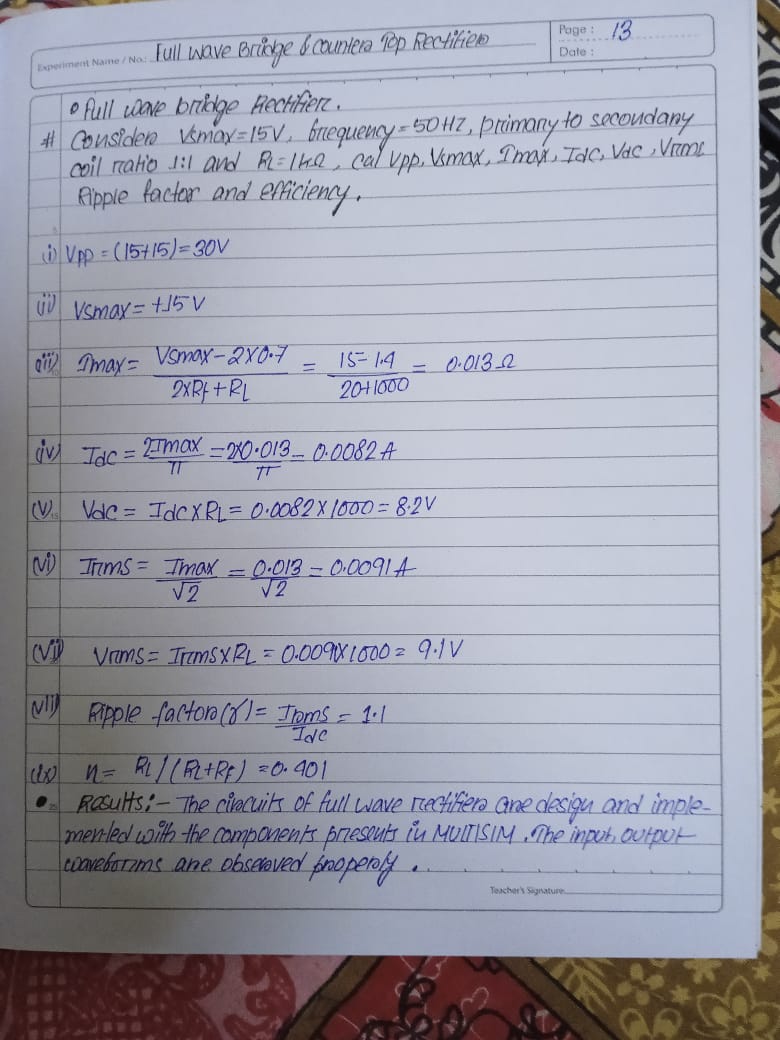 Experiment Name / No.: Full wave Bridge & countera Top Rectifiero
Page : 13
Date :
• Full wave bridge Rectifier.
# Consider Vsmax=15V, frequency=50HZ, primary to secondary
coil ratio 1:1 and RL=1kΩ, cal Vpp, Vsmax, Imax, Idc, Vdc, Vrms
Ripple factor and efficiency.
(i) Vpp = (15+15)=30V
(ii) Vsmax= +15V
(iii) Imax= Vsmax-2×0.7 / 2×Rf+RL = 15-1.4 / 20+1000 = 0.013Ω
(iv) Idc = 2Imax / π = 2×0.013 / π = 0.0082A
(v) Vdc = Idc×RL= 0.0082×1000=8.2V
(vi) Irms = Imax / √2 = 0.013 / √2 = 0.0091A
(vii) Vrms= Irms×RL = 0.0091×1000= 9.1V
(viii) Ripple factor(γ)= Irms / Idc = 1.1
(ix) n= RL/(RL+Rf) =0.401
• Results:- The circuits of full wave rectifiers are design and imple-
mented with the components presents in MULTISIM. The input, output
waveforms are observed properly.
Teacher's Signature